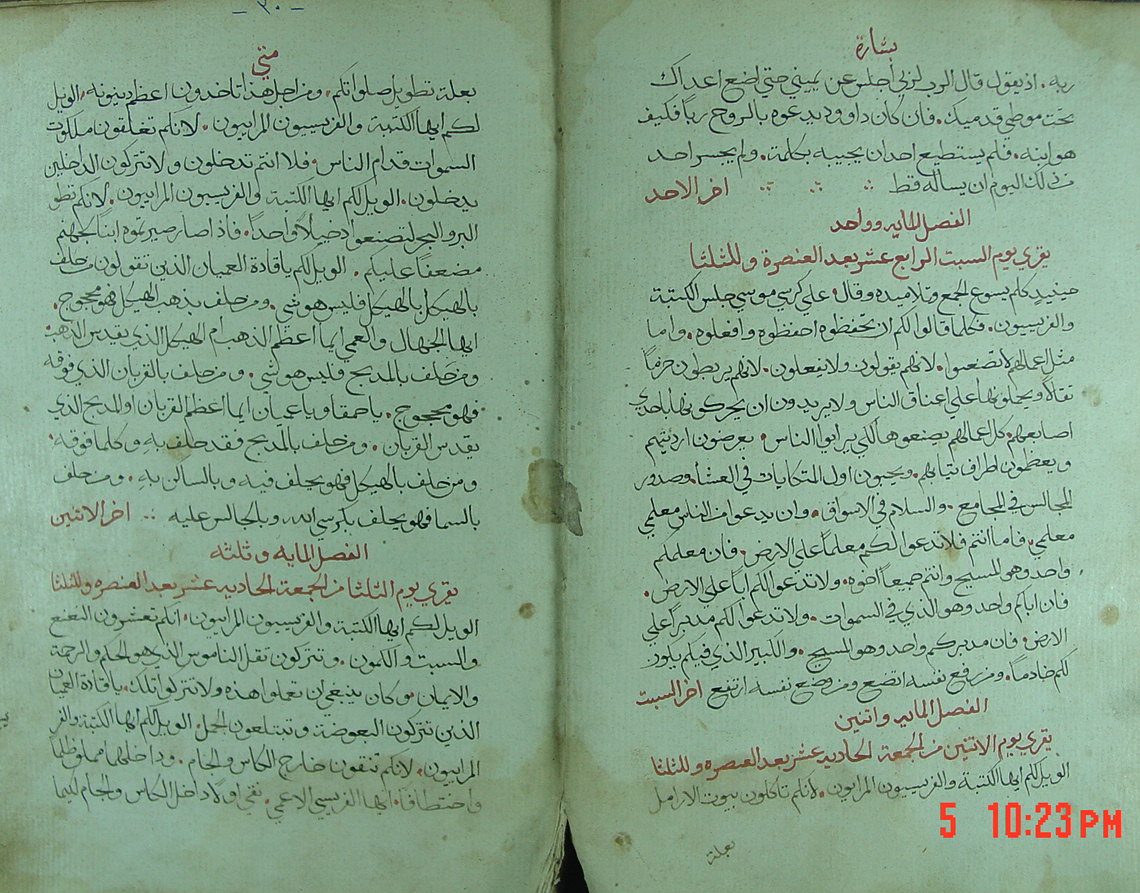 بشارة
ربه. اذ يقول قال الرب لربي اجلس عن يميني حتي اضع اعداك
تحت موطي قدميك. فان كان داوود يدعوه بالروح ربا فكيف
هو ابنه. فلم يستطيع احد ان يجيبه بكلمة. ولم يجسر احد
من ذلك اليوم ان يساله قط اخر الاحد
الفصل المايه وواحد
يقري يوم السبت الرابع عشر بعد العنصرة وللثلثا
حينيذ كلم يسوع الجمع وتلاميده وقال. علي كرسي موسي جلس الكتبة
والفريسيون. فكلما قالوا لكم ان تحفظوه احفظوه وافعلوه. واما
مثل اعمالهم لا تصنعوا. لانهم يقولون ولا يفعلون. لانهم يربطون حزماً
ثقالاً ويحملونها علي اعناق الناس ولا يريدون ان يحركونها باحدي
اصابعهم. كل اعمالهم يصنعوها لكي يرايوا الناس. يعرضون ارديتهم
ويعظمون اطراف ثيابهم. ويحبون اول المتكايات في العشا. وصدور
المجالس في المجامع. والسلام في الاسواق. وان يدعوا من الناس معلمي
معلمي. فاما انتم فلا تدعوا لكم معلماً علي الارض. فان معلمكم
واحد وهو المسيح وانتم جميعاً اخوه. ولا تدعوا لكم اباً علي الارض.
فان اباكم واحد وهو الذي في السموات. ولا تدعوا لكم مدبراً علي
الارض. فان مدبركم واحد وهو المسيح. والكبير الذي فيكم يكون
لكم خادماً. ومن رفع نفسه اتضع ومن وضع نفسه ارتفع اخر السبت
الفصل المايه واتنين
يقري يوم الاتنين من الجمعة الحاديه عشر بعد العنصره وللثلثا
الويل لكم ايها الكتبة والفريسيون المرايون. لانكم تاكلون بيوت الارامل
بعلة
٢٠
متي
بعلة تطويل صلواتكم. ومن اجل هذا تاخدون اعظم دينونه. الويل
لكم ايها الكتبة والفريسيون المرايون. لانكم تغلقون ملكوت
السموات قدام الناس. فلا انتم تدخلون ولا تتركون الداخلين
يدخلون. الويل لكم ايها الكتبة والفريسيون المرايون. لانكم تطو
البر والبحر لتصنعوا دخيلاً واحداً. فاذا صار صيرتموه ابناً لجهنم
مضعفاً عليكم. الويل لكم يا قادة العميان الذين تقولون من حلف
بالهيكل فليس هو شي. ومن حلف بذهب الهيكل فهو محجوج.
ايها الجهال والعمي ايما اعظم الذهب ام الهيكل الذي يقدس الذهب.
ومن حلف بالمدبح فليس هو شي. ومن حلف بالقربان الذي فوقه
فهو محجوج. يا حمقا ويا عميان ايما اعظم القربان او المدبح الذي
يقدس القربان. ومن حلف بالمدبح فقد حلف به وكلما فوقه.
ومن حلف بالهيكل فهو يحلف فيه وبالساكن به. ومن حلف
بالسما فهو يحلف بكرسي الله وبالجالس عليه اخر الاتنين
الفصل المايه وثلثه
يقري يوم الثلثا من الجمعة الحاديه عشر بعد العنصره وللثلثا
الويل لكم ايها الكتبة والفريسيون المرايون. انكم تعشرون النعنع
والسبت والكمون. وتتركون ثقل الناموس الذي هو الحكم والرحمة
والايمان. وكان ينبغي ان تعملوا هذه ولا تتركوا تلك. يا قادة العميان
الذين تتركون البعوضة وتبتلعون الجمل. الويل لكم ايها الكتبة والفر
المرايون. لانكم تنقون خارج الكاس والجام. وداخلهما مملو ظلما
واختطافا. ايها الفريسي الاعمي. نقي اولا داخل الكاس والجام لكيما
5 10:23PM